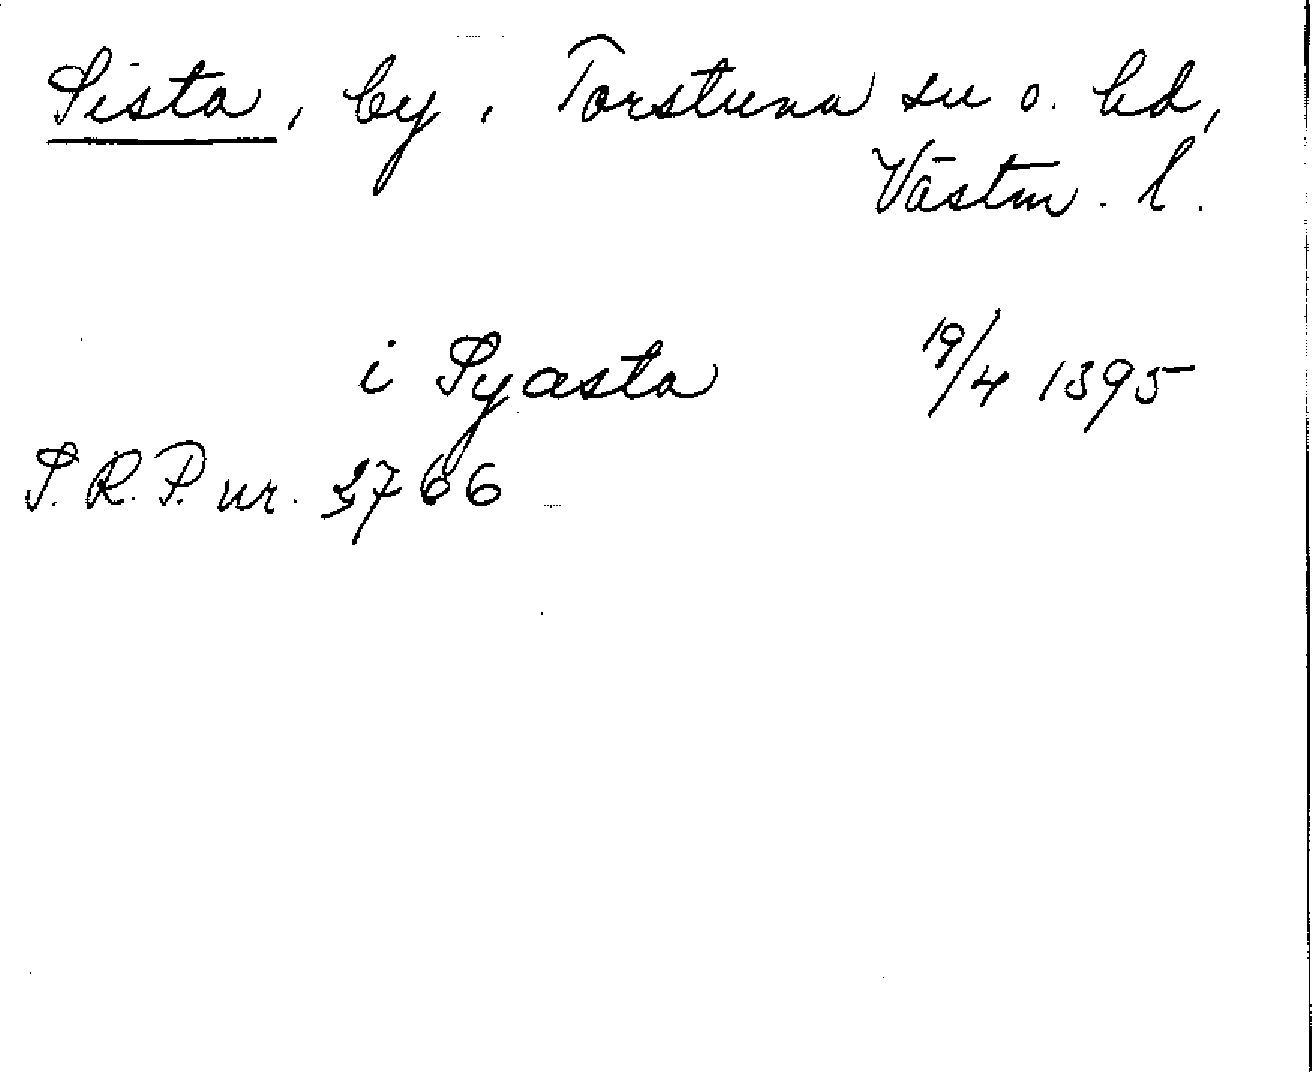 Sista, by, Torstuna sn o. hd,
Västm. l.
i Syasta 19/4 1395
S.R.P. nr. 2766